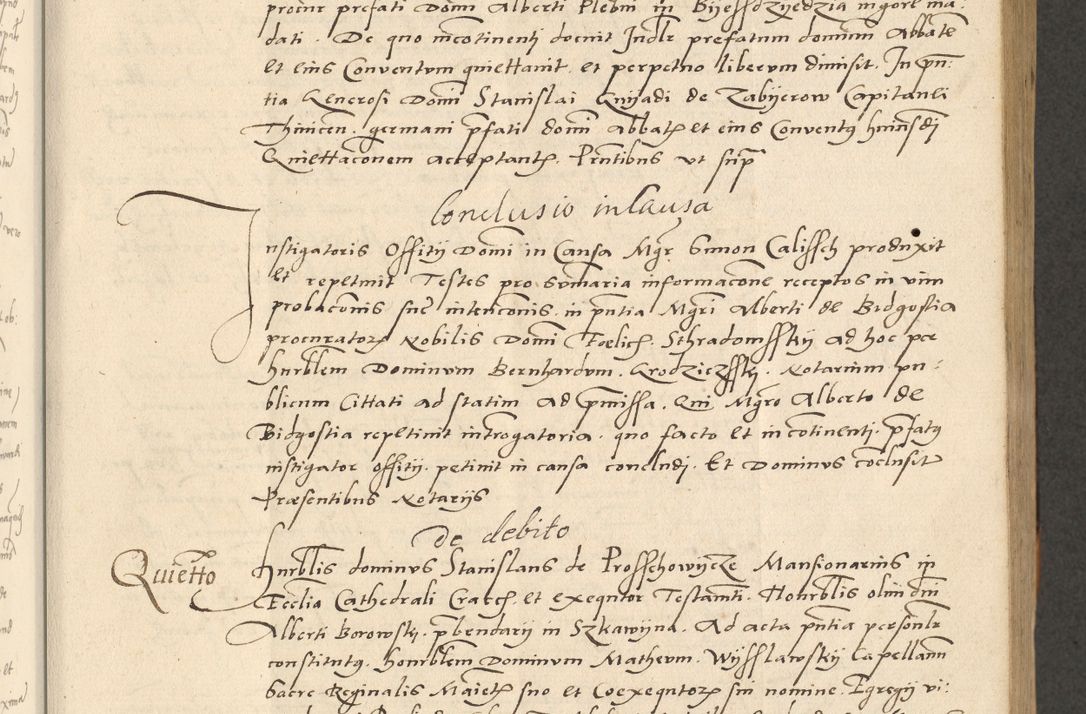 procur prefati Domi Alberti Plebni in Byessdzyedzia
dati. De quo incotinenti docuit Indlr prefatum dominum Abbate
et eius Conventum quiettavit. et perpetuo liberum dimisit. In pn:
tia Generosi Domi Stanislai Gnyadi de Zabyerow Capitanei
Thinicen. germani pfati domi Abbat et eius Conventq huiusdi
Quiettaconem acceptant. Pntibus ut sup
Conclusio in Causa
Instigatoris Offitij Domi in Causa Mgr Simon Calissch produxit
et repetiuit Testes pro sumaria informacone receptos in vim
probaconis sue intenconis. in pntia Mgri Alberti de Bidgostia
procurator Nobilis Domi Foelicis. Sthradomssky ad hoc per
hnrblem Dominum Bernhardum. Grodziczssky. Notarium pu-
blicum Cittati ad statim ad pmissa. Qui Mgro Alberto de
Bidgostia repetiuit introgatoria. quo facto et in cotinenti. pfatq
instigator offitij. petiuit in causa concludi. Et Dominus coclusit
Præsentibus Notarijs
De debito
Quietto
Hnrblis dominus Stanislaus de Prosschowycze Mansionarius in
Ecclia Cathedrali Cracch. et exequtor Testamti. Honrblis olim dni
Alberti Borowsky. pbendarij in Szkawyna. Ad acta pntia personlr
constitutq. honrblem Dominum Matheum. Wysslawsky Capellanu
Sacre Reginalis Maiet suo et Coexequtor sui nomine. Egregij vi: